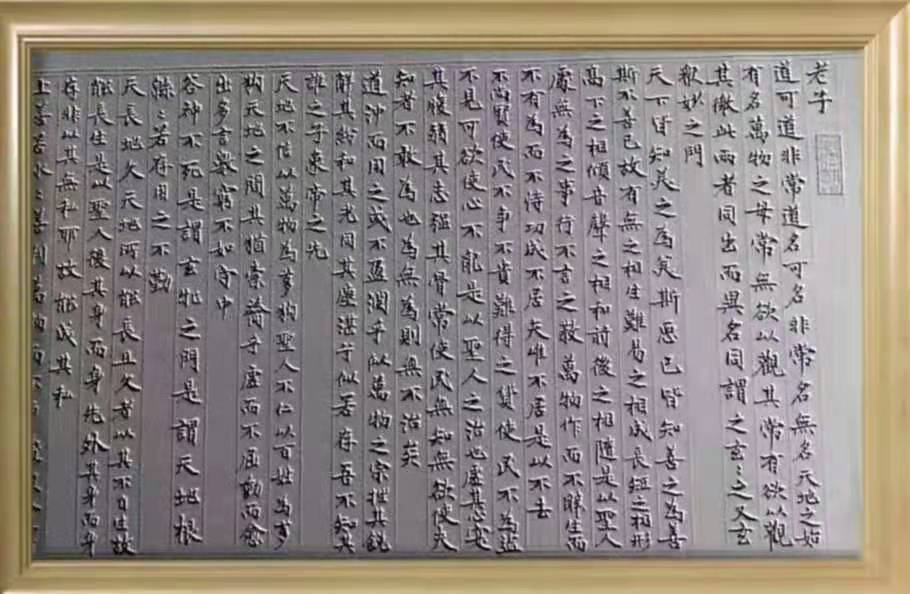 老子
道可道非常道名可名非常名無名天地之始
有名萬物之母常無欲以觀其常有欲以觀
其徼此兩者同出而異名同謂之玄々之又玄
衆妙之門
天下皆知美之為美斯惡已皆知善之為善
斯不善已故有無之相生難易之相成長短之相形
高下之相傾音聲之相和前後之相隨是以聖人
處無為之事行不言之教萬物作而不辭生而
不有為而不恃功成不居夫唯不居是以不去
不尚賢使民不爭不貴難得之貨使民不為盜
不見可欲使心不亂是以聖人之治也虛其心實
其腹弱其志強其骨常使民無知無欲使夫
知者不敢為也為無為則無不治矣
道沖而用之或不盈淵乎似萬物之宗挫其銳
解其紛和其光同其塵湛兮似若存吾不知其
誰之子象帝之先
天地不仁以萬物為芻狗聖人不仁以百姓為芻
狗天地之間其猶橐籥乎虛而不屈動而愈
出多言數窮不如守中
谷神不死是謂玄牝之門是謂天地根
綿々若存用之不勤
天長地久天地所以能長且久者以其不自生故
能長生是以聖人後其身而身先外其身而身
存非以其無私耶故能成其私
上善若水